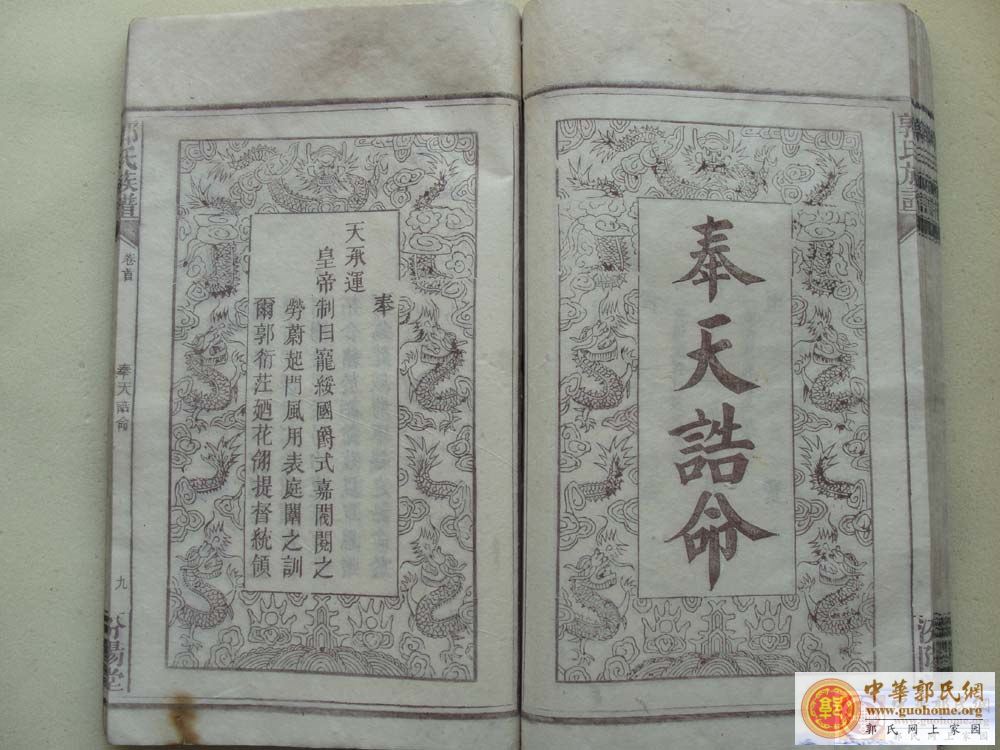 奉天誥命
奉
天承運
皇帝制曰寵綏國爵式嘉閥閱之
勞蔚起門風用表庭闈之訓
爾郭衍汪廼花翎提督統領
郭氏族譜
卷首
奉天誥命
九
汾陽堂
中華郭氏網
www.guohome.org
郭氏网上家园